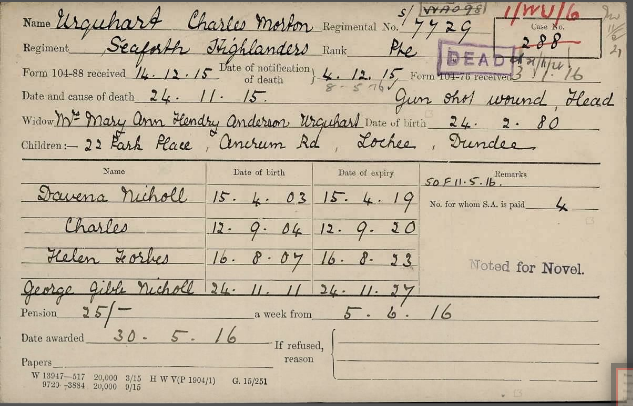 Name Urquhart Charles Morton Regimental No. S/7729 11/WU/6
Case No. 288
Regiment Seaforth Highlanders Rank Pte
DEAD
Form 104-88 received 14.12.15 Date of notification of death } 4.12.15 Form 104-76 received 3 1.16
8-5-16
Date and cause of death 24. 11. 15. Gun shot wound, Head
Widow Mrs Mary Ann Hendry Anderson Urquhart Date of birth 24. 2. 80
Children:— 22 Park Place, Ancrum Rd, Lochee, Dundee
Name Date of birth Date of expiry Remarks
Davena Nicholl 15. 4. 03 15. 4. 19 SOF 11.5.16.
No. for whom S.A. is paid 4
Charles 12. 9. 04 12. 9. 20
Helen Forbes 16. 8. 07 16. 8. 23
Noted for Novel.
George Gible Nicholl 24. 11. 11 24. 11. 27
Pension 25/- a week from 5. 6. 16
Date awarded 30. 5. 16 If refused, reason {
Papers
W 13947—517 20,000 3/15 H W V(P 1904/1) G. 15/251
9720—3884 20,000 9/15